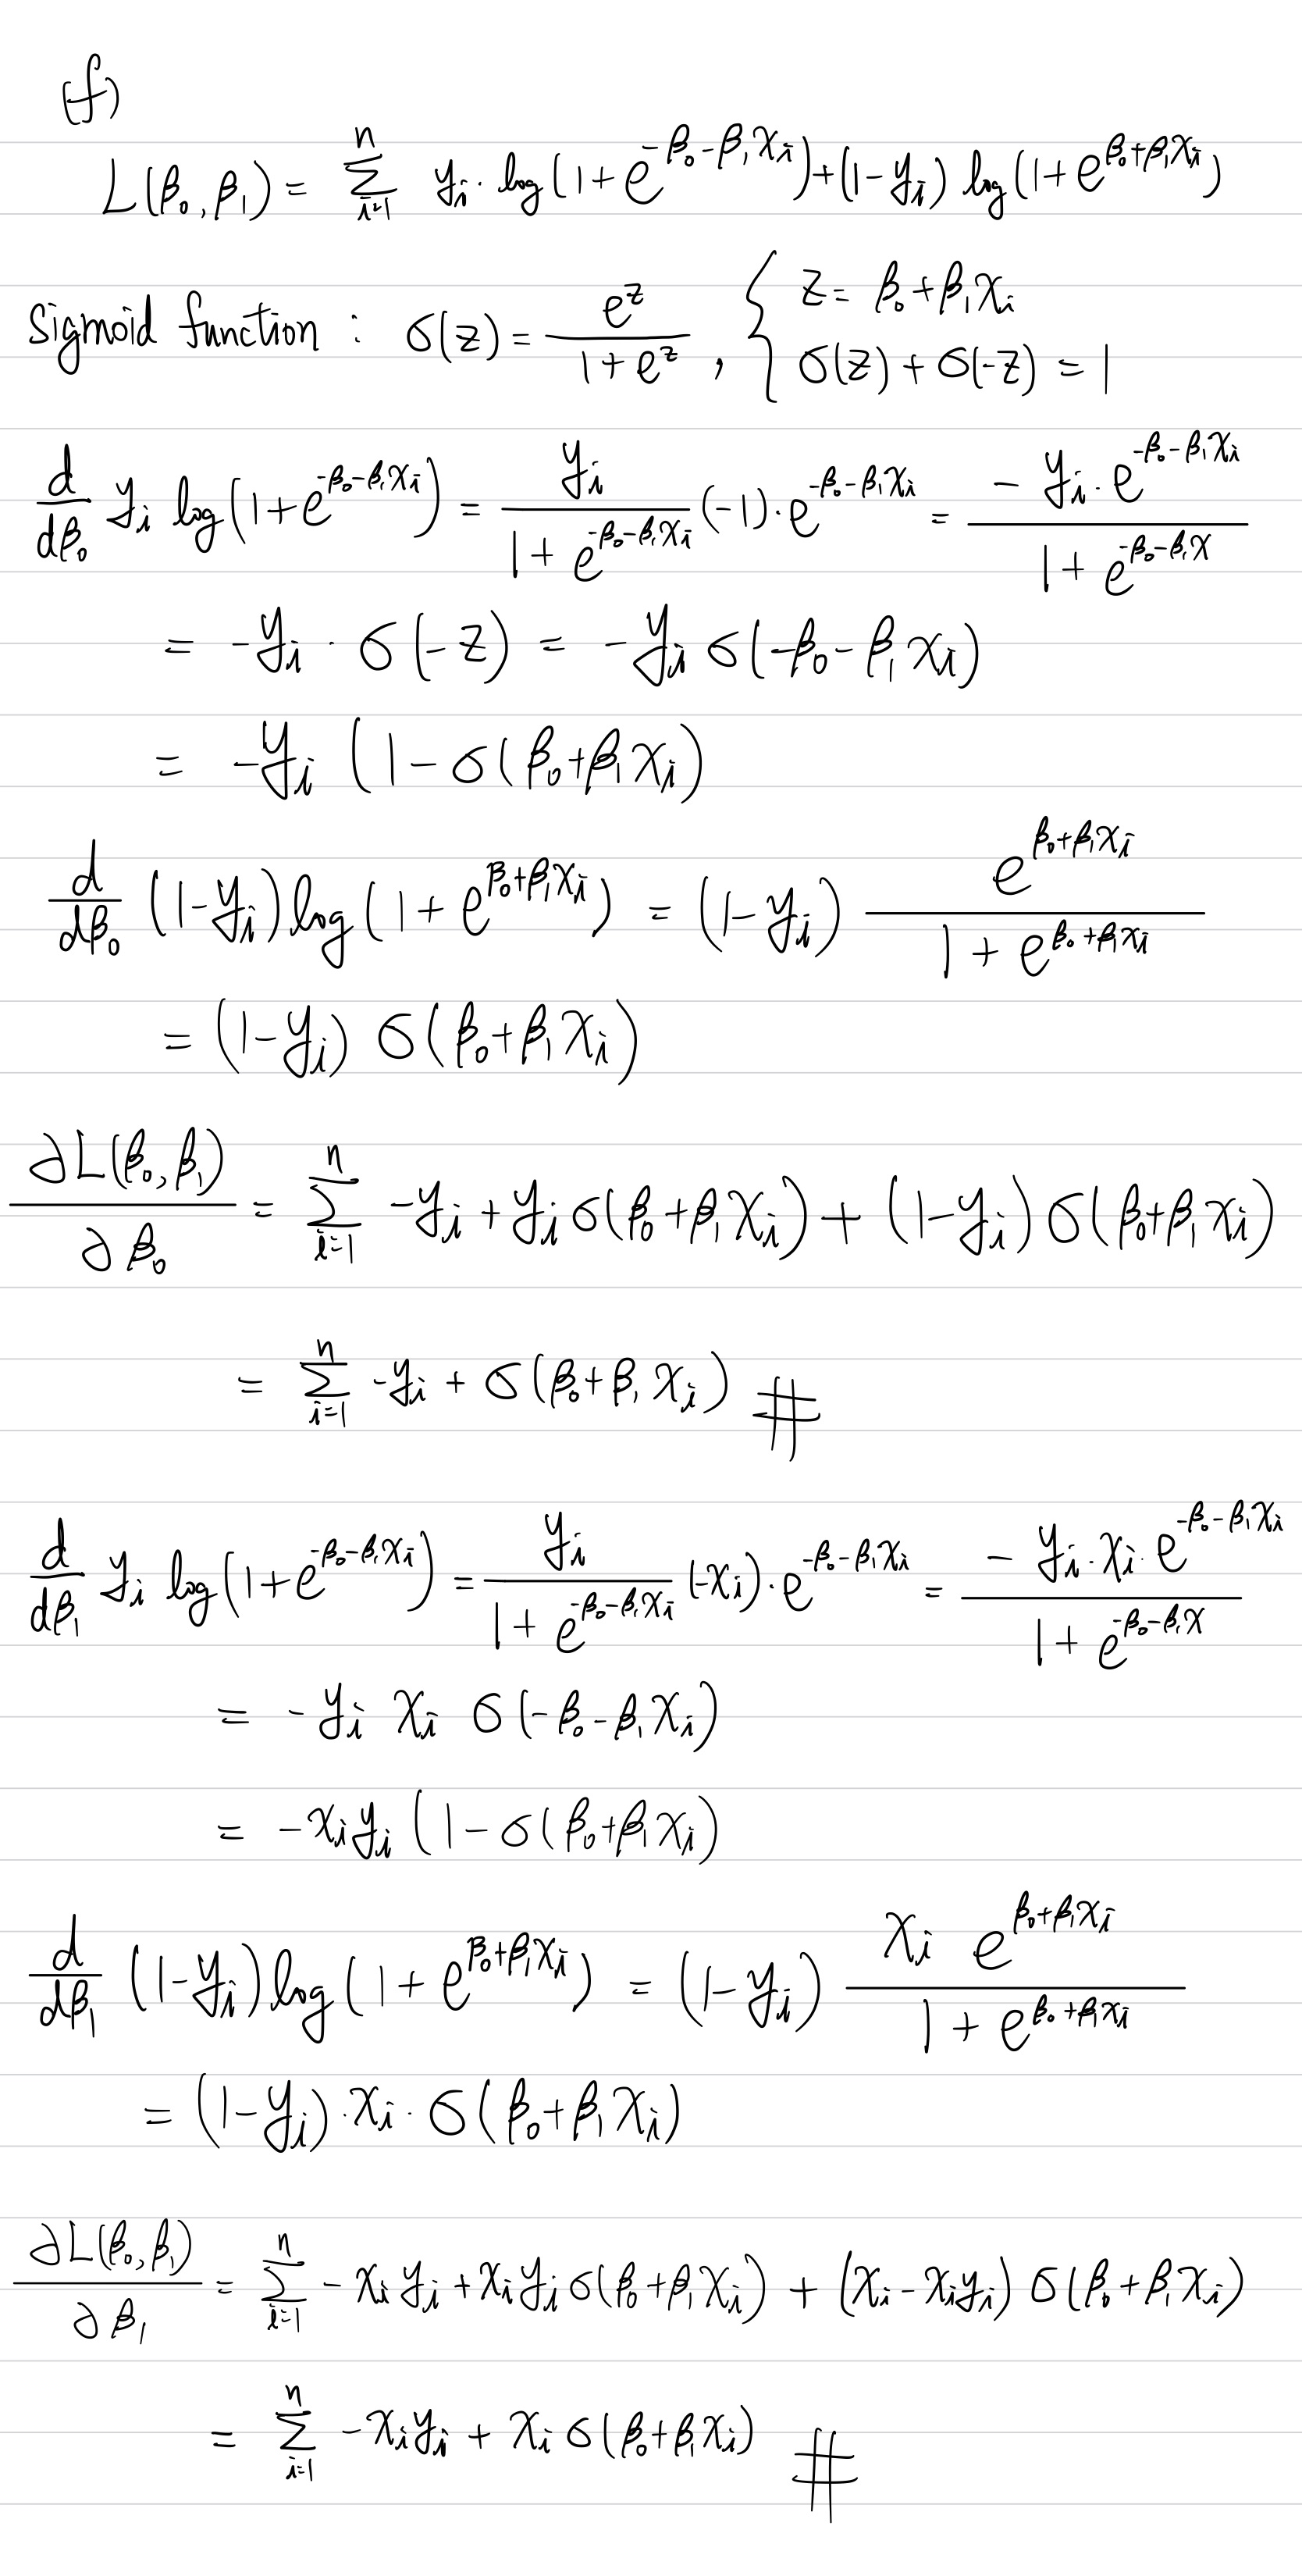 (f)
L(β₀, β₁) = ∑_{i=1}^{n} y_i · log(1+e^{-β₀-β₁x_i}) + (1-y_i) log(1+e^{β₀+β₁x_i})
Sigmoid function : σ(z) = \frac{e^z}{1+e^z} , { z = β₀+β₁x_i
σ(z) + σ(-z) = 1
\frac{d}{dβ₀} y_i log(1+e^{-β₀-β₁x_i}) = \frac{y_i}{1+e^{-β₀-β₁x_i}} (-1)·e^{-β₀-β₁x_i} = \frac{-y_i·e^{-β₀-β₁x_i}}{1+e^{-β₀-β₁x}}
= -y_i · σ(-z) = -y_i σ(-β₀-β₁x_i)
= -y_i (1-σ(β₀+β₁x_i)
\frac{d}{dβ₀} (1-y_i) log(1+e^{β₀+β₁x_i}) = (1-y_i) \frac{e^{β₀+β₁x_i}}{1+e^{β₀+β₁x_i}}
= (1-y_i) σ(β₀+β₁x_i)
\frac{∂L(β₀,β₁)}{∂β₀} = ∑_{i=1}^{n} -y_i + y_i σ(β₀+β₁x_i) + (1-y_i) σ(β₀+β₁x_i)
= ∑_{i=1}^{n} -y_i + σ(β₀+β₁x_i) #
\frac{d}{dβ₁} y_i log(1+e^{-β₀-β₁x_i}) = \frac{y_i}{1+e^{-β₀-β₁x_i}} (-x_i)·e^{-β₀-β₁x_i} = \frac{-y_i·x_i·e^{-β₀-β₁x_i}}{1+e^{-β₀-β₁x}}
= -y_i x_i σ(-β₀-β₁x_i)
= -x_i y_i (1-σ(β₀+β₁x_i)
\frac{d}{dβ₁} (1-y_i) log(1+e^{β₀+β₁x_i}) = (1-y_i) \frac{x_i e^{β₀+β₁x_i}}{1+e^{β₀+β₁x_i}}
= (1-y_i)·x_i·σ(β₀+β₁x_i)
\frac{∂L(β₀,β₁)}{∂β₁} = ∑_{i=1}^{n} -x_i y_i + x_i y_i σ(β₀+β₁x_i) + (x_i-x_i y_i) σ(β₀+β₁x_i)
= ∑_{i=1}^{n} -x_i y_i + x_i σ(β₀+β₁x_i) #